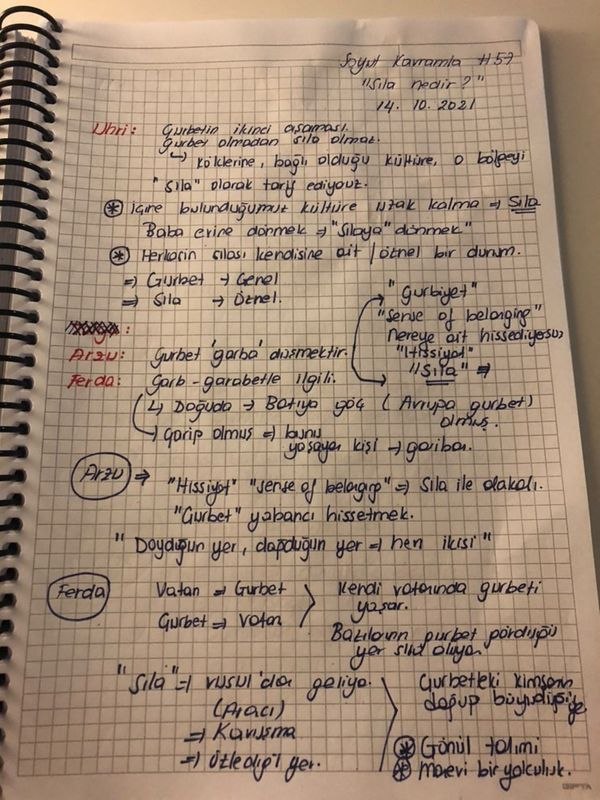 Soyut Kavramla #57
"Sıla nedir?"
14. 10. 2021
Uhri: Gurbetin ikinci aşaması.
Gurbet olmadan sıla olmaz.
↳ köklerine, bağlı olduğu kültüre, o bölgeyi
"Sıla" olarak tarif ediyoruz.
* İçine bulunduğumuz kültüre uzak kalma ⇒ Sıla
Baba evine dönmek ⇒ "Sılaya" dönmek"
* Herkesin sılası kendisine ait / öznel bir durum.
⇒ Gurbet → Genel
⇒ Sıla → Öznel.
"Gurbiyet"
"sense of belonging"
Nereye ait hissediyorsun
"Hissiyat"
"Sıla" ⇒
Arzu: Gurbet 'garba' düşmektir.
Ferda: Garb - garabetle ilgili.
↳ Doğuda → Batıya göç (Avrupa gurbet)
olmuş.
→ Garip olmuş ⇒ bunu
yaşayan kişi → gariban.
Arzu ⇒
"Hissiyat" "sense of belonging" ⇒ Sıla ile alakalı.
"Gurbet" yabancı hissetmek.
"Doyduğun yer, doğduğun yer ⇒ hem ikisi"
Ferda
Vatan ⇒ Gurbet
Gurbet ⇒ Vatan
Kendi vatanında gurbeti
yaşar.
Bazılarının gurbet gördüğü
yer sıla oluyor.
"Sıla" ⇒ vusul'dan geliyor.
(Aracı)
⇒ Kavuşma
⇒ özlediği yer.
Gurbetteki kimsenin
doğup büyüdüğü
yer.
* Gönül talimi
* Manevi bir yolculuk.
GIPTA